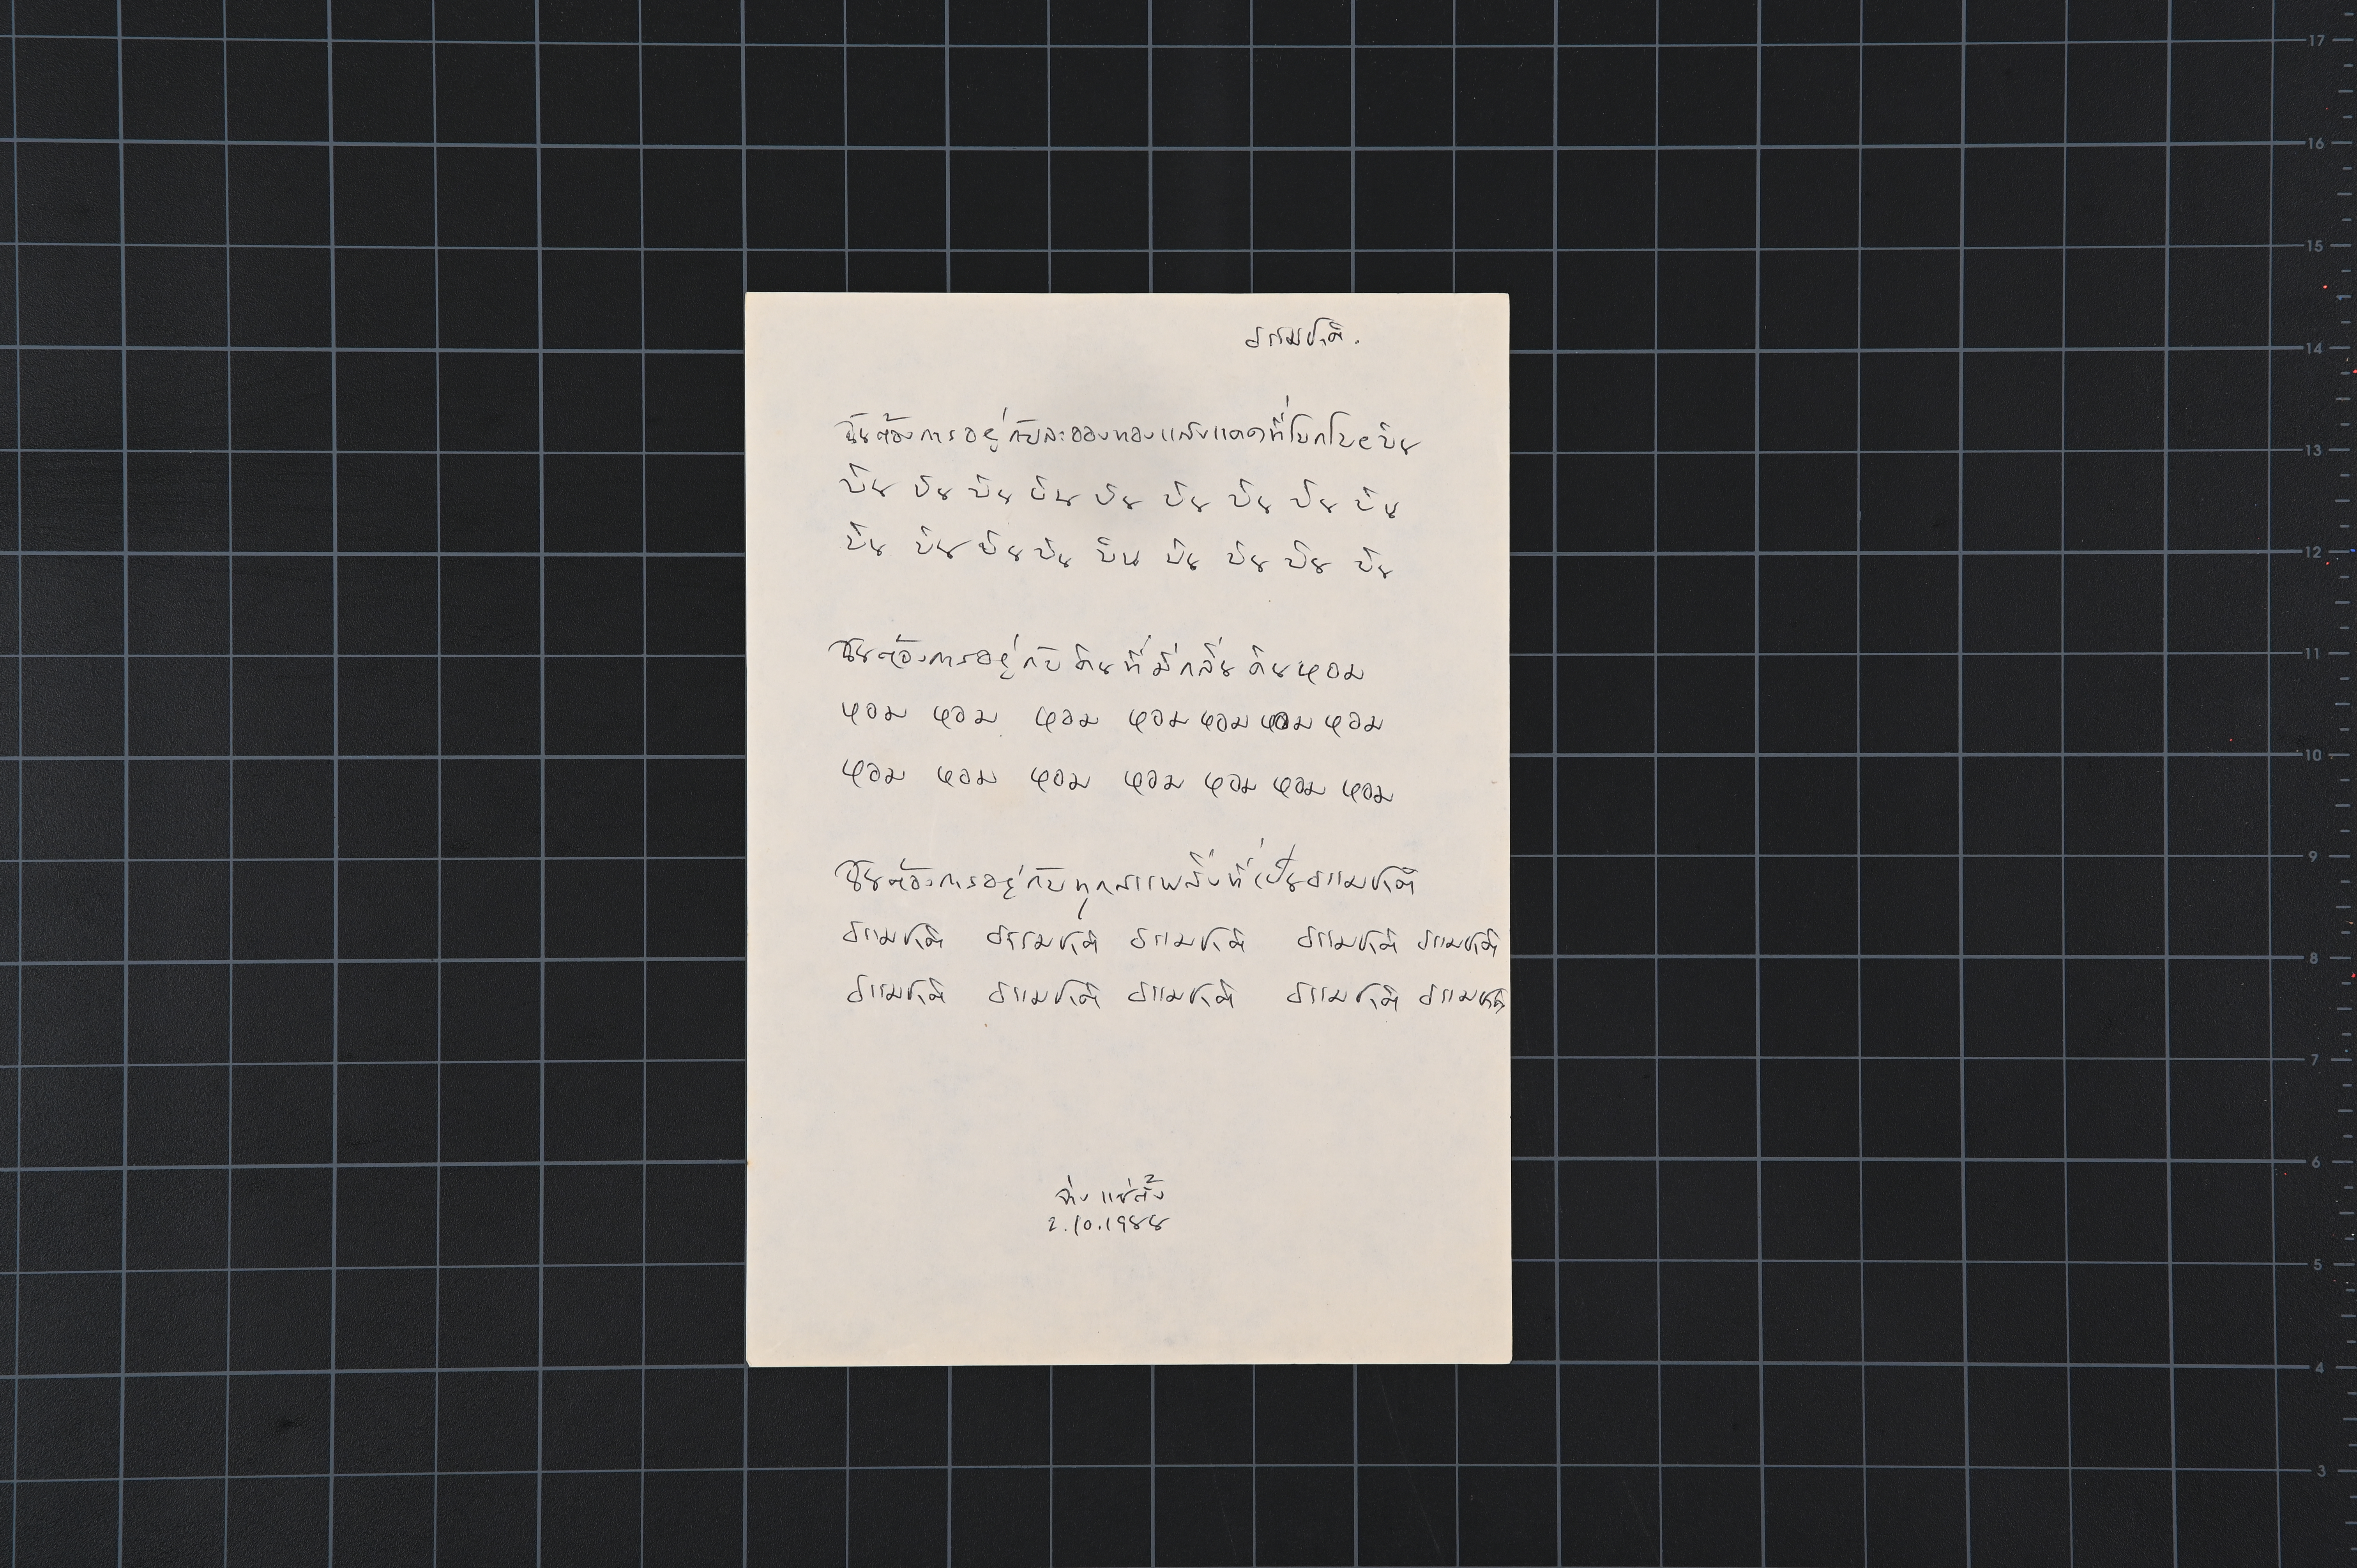 ธรรมชาติ.
ฉันต้องการอยู่กับละอองทองแสงแดดที่โบกโบยบิน
บิน บิน บิน บิน บิน บิน บิน บิน บิน
บิน บิน บิน บิน บิน บิน บิน บิน บิน
ฉันต้องการอยู่กับดินที่มีกลิ่นดินหอม
หอม หอม หอม หอม หอม หอม หอม
หอม หอม หอม หอม หอม หอม หอม
ฉันต้องการอยู่กับทุกสรรพสิ่งที่เป็นธรรมชาติ
ธรรมชาติ ธรรมชาติ ธรรมชาติ ธรรมชาติ ธรรมชาติ
ธรรมชาติ ธรรมชาติ ธรรมชาติ ธรรมชาติ ธรรมชาติ
จ่าง แซ่ตั้ง
2.10.1988
17
16
15
14
13
12
11
10
9
8
7
6
5
4
3